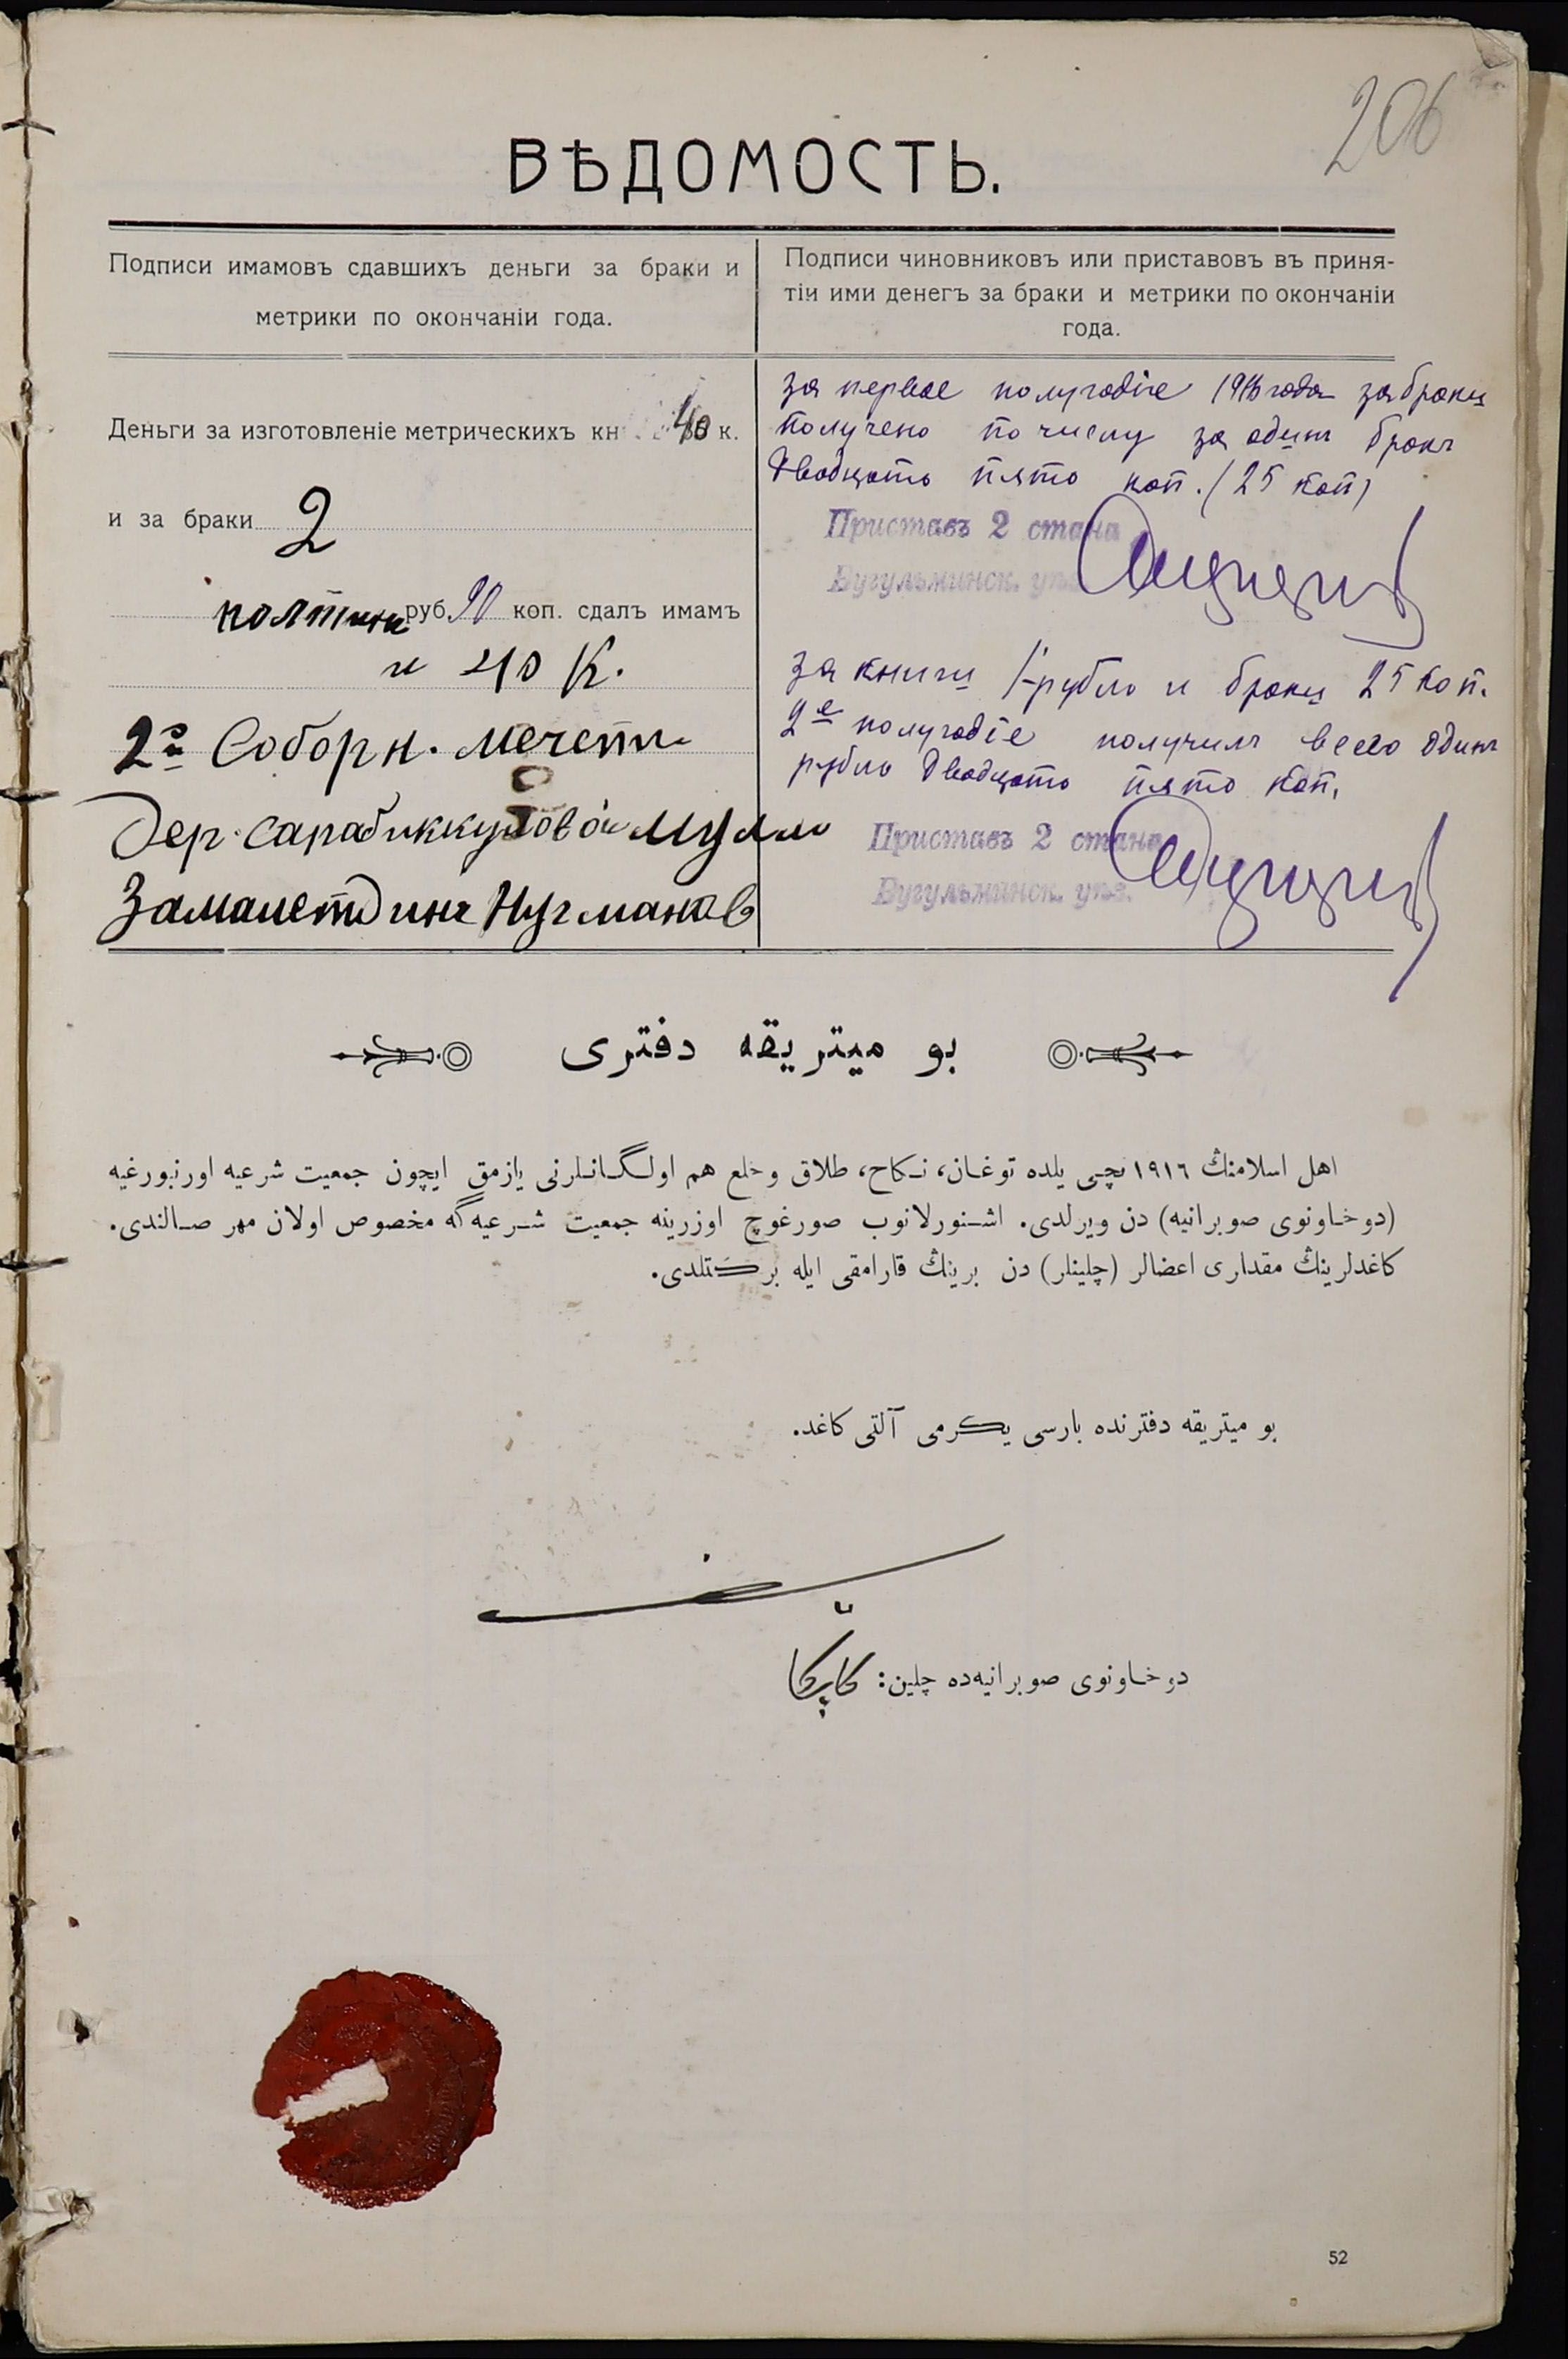 206
ВѢДОМОСТЬ.
Подписи имамовъ сдавшихъ деньги за браки и
метрики по окончаніи года.
Подписи чиновниковъ или приставовъ въ приня-
тіи ими денегъ за браки и метрики по окончаніи
года.
Деньги за изготовленіе метрическихъ кн 40 к.
и за браки 2
полтину руб. 90 коп. сдалъ имамъ
и 40 к.
2й Соборн. мечети
дер. Сарабиккуловой мулла
Заманетдинъ Нугманов
за первое полугодіе 1916 года за браки
получено по числу за один брак
двадцать пять коп. (25 коп)
Приставъ 2 стана
Бугульминск. уѣз.
за книги 1 рубль и браки 25 коп.
2е полугодіе получил всего один
рубль двадцать пять коп.
Приставъ 2 стана
Бугульминск. уѣз.
بو ميتريقه دفترى
اهل اسلامنڭ ١٩١٦ نچى يلده توغان، نكاح، طلاق و خلع هم اولگانلرنى يازمق ايچون جمعيت شرعيه اورنبورغيه
(دوخاونوى صوبرانيه) دن ويرلدى. اشنورلانوب صورغوچ اوزرينه جمعيت شرعيه‌گه مخصوص اولان مهر صالندى.
كاغدلرينڭ مقدارى اعضالر (چلينلر) دن برينڭ قارامقى ايله بركتلدى.
بو ميتريقه دفترنده بارسى يكرمى آلتى كاغد.
دوخاونوى صوبرانيه‌ده چلين:
52